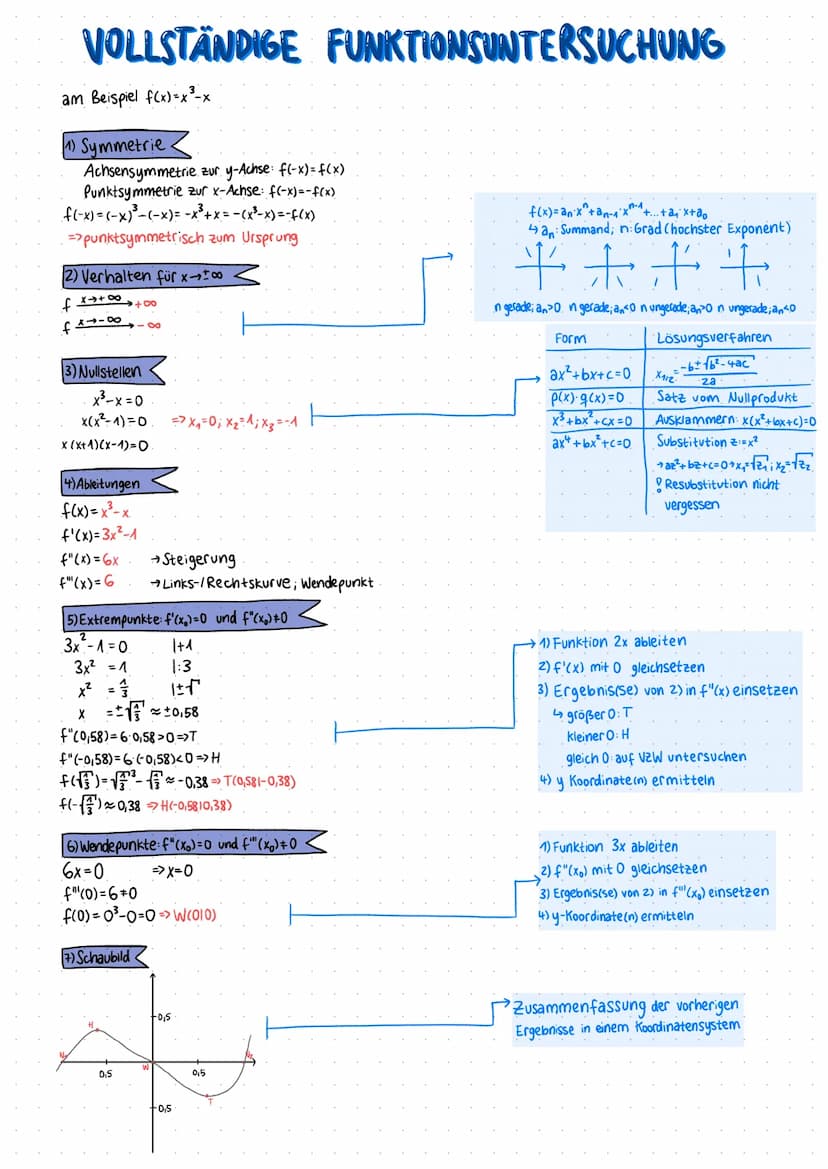 VOLLSTÄNDIGE FUNKTIONSUNTERSUCHUNG
am Beispiel f(x)=x³-x
1) Symmetrie
Achsensymmetrie zur y-Achse: f(-x)=f(x)
Punktsymmetrie zur x-Achse: f(-x)=-f(x)
f(-x)=(-x)³-(-x)= -x³+x= -(x³-x)=-f(x)
=>punktsymmetrisch zum Ursprung
f(x)=aₙ·xⁿ+aₙ₋₁·xⁿ⁻¹+...+a₁·x+a₀
↳ aₙ: Summand; n: Grad (höchster Exponent)
n gerade; aₙ>0 n gerade; aₙ<0 n ungerade; aₙ>0 n ungerade; aₙ<0
2) Verhalten für x→±∞
f x→+∞ → +∞
f x→-∞ → -∞
3) Nullstellen
x³-x=0
x(x²-1)=0 => x₁=0; x₂=1; x₃=-1
x(x+1)(x-1)=0
Form Lösungsverfahren
ax²+bx+c=0 x₁/₂= -b±√b²-4ac / 2a
p(x)·q(x)=0 Satz vom Nullprodukt
x³+bx²+cx=0 Ausklammern: x(x²+bx+c)=0
ax⁴+bx²+c=0 Substitution z:=x²
→az²+bz+c=0→x₁=√z₁; x₂=√z₂
! Resubstitution nicht
vergessen
4) Ableitungen
f(x)=x³-x
f'(x)=3x²-1
f''(x)=6x →Steigerung
f'''(x)=6 →Links-/Rechtskurve; Wendepunkt
5) Extrempunkte: f'(x₀)=0 und f''(x₀)≠0
3x²-1=0 |+1
3x²=1 |:3
x²=1/3 |±√
x=±√1/3≈±0,58
f''(0,58)=6·0,58>0=>T
f''(-0,58)=6·(-0,58)<0=>H
f(√1/3)=√1/3³-√1/3≈-0,38=>T(0,58|-0,38)
f(-√1/3)≈0,38 =>H(-0,58|0,38)
1) Funktion 2x ableiten
2) f'(x) mit 0 gleichsetzen
3) Ergebnis(se) von 2) in f''(x) einsetzen
↳ größer 0: T
kleiner 0: H
gleich 0: auf VZW untersuchen
4) y Koordinate(n) ermitteln
6) Wendepunkte: f''(x₀)=0 und f'''(x₀)≠0
6x=0 =>x=0
f'''(0)=6≠0
f(0)=0³-0=0=>W(0|0)
1) Funktion 3x ableiten
2) f''(x₀) mit 0 gleichsetzen
3) Ergebnis(se) von 2) in f'''(x₀) einsetzen
4) y-Koordinate(n) ermitteln
7) Schaubild
0,5
H
N₁
N₂
W
0,5
0,5
T
0,5
Zusammenfassung der vorherigen
Ergebnisse in einem Koordinatensystem